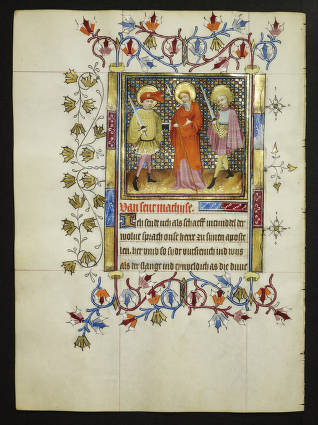 Van sente mathijse.
Ich sende uch als schaeff inmiddel der
wolue sprach onse herre zu sinen apost
len. her vmb so syde vursienich ind wys
als der slange ind eynueldich as die duue